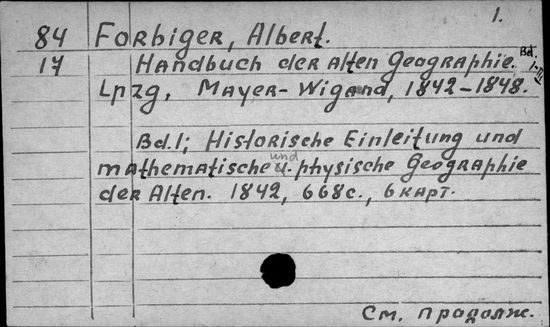 1.
84 Forbiger, Albert.
17 Handbuch der alten Geographie. Bd. I-III
Lpzg, Mayer-Wigand, 1842-1848.
Bd.1; Historische Einleitung und
mathematische und physische Geographie
der Alten. 1842, 668с., 6 карт.
См. продолж.